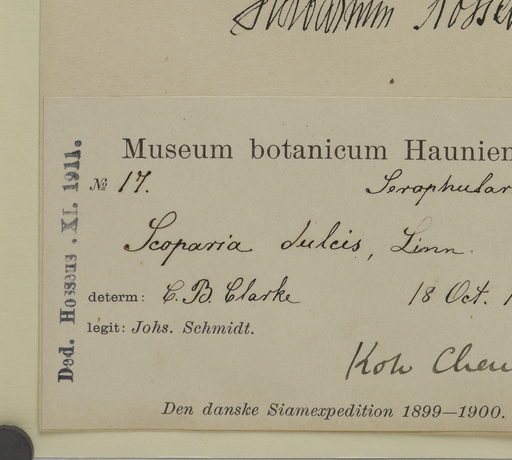 Museum botanicum Haunien
№ 17. Scrophular
Scoparia dulcis, Linn.
determ: C. B. Clarke 18 Oct. 1
legit: Johs. Schmidt.
Koh Chan
Den danske Siamexpedition 1899—1900.
Ded. Hosseus. XI. 1911.